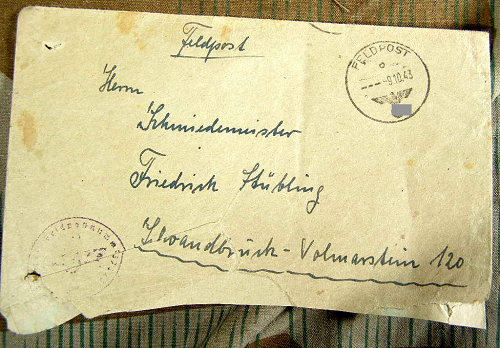 Feldpost
FELDPOST
-9.10.43
Herrn
Schmiedemeister
Friedrich Stübling
Volmarstein 120